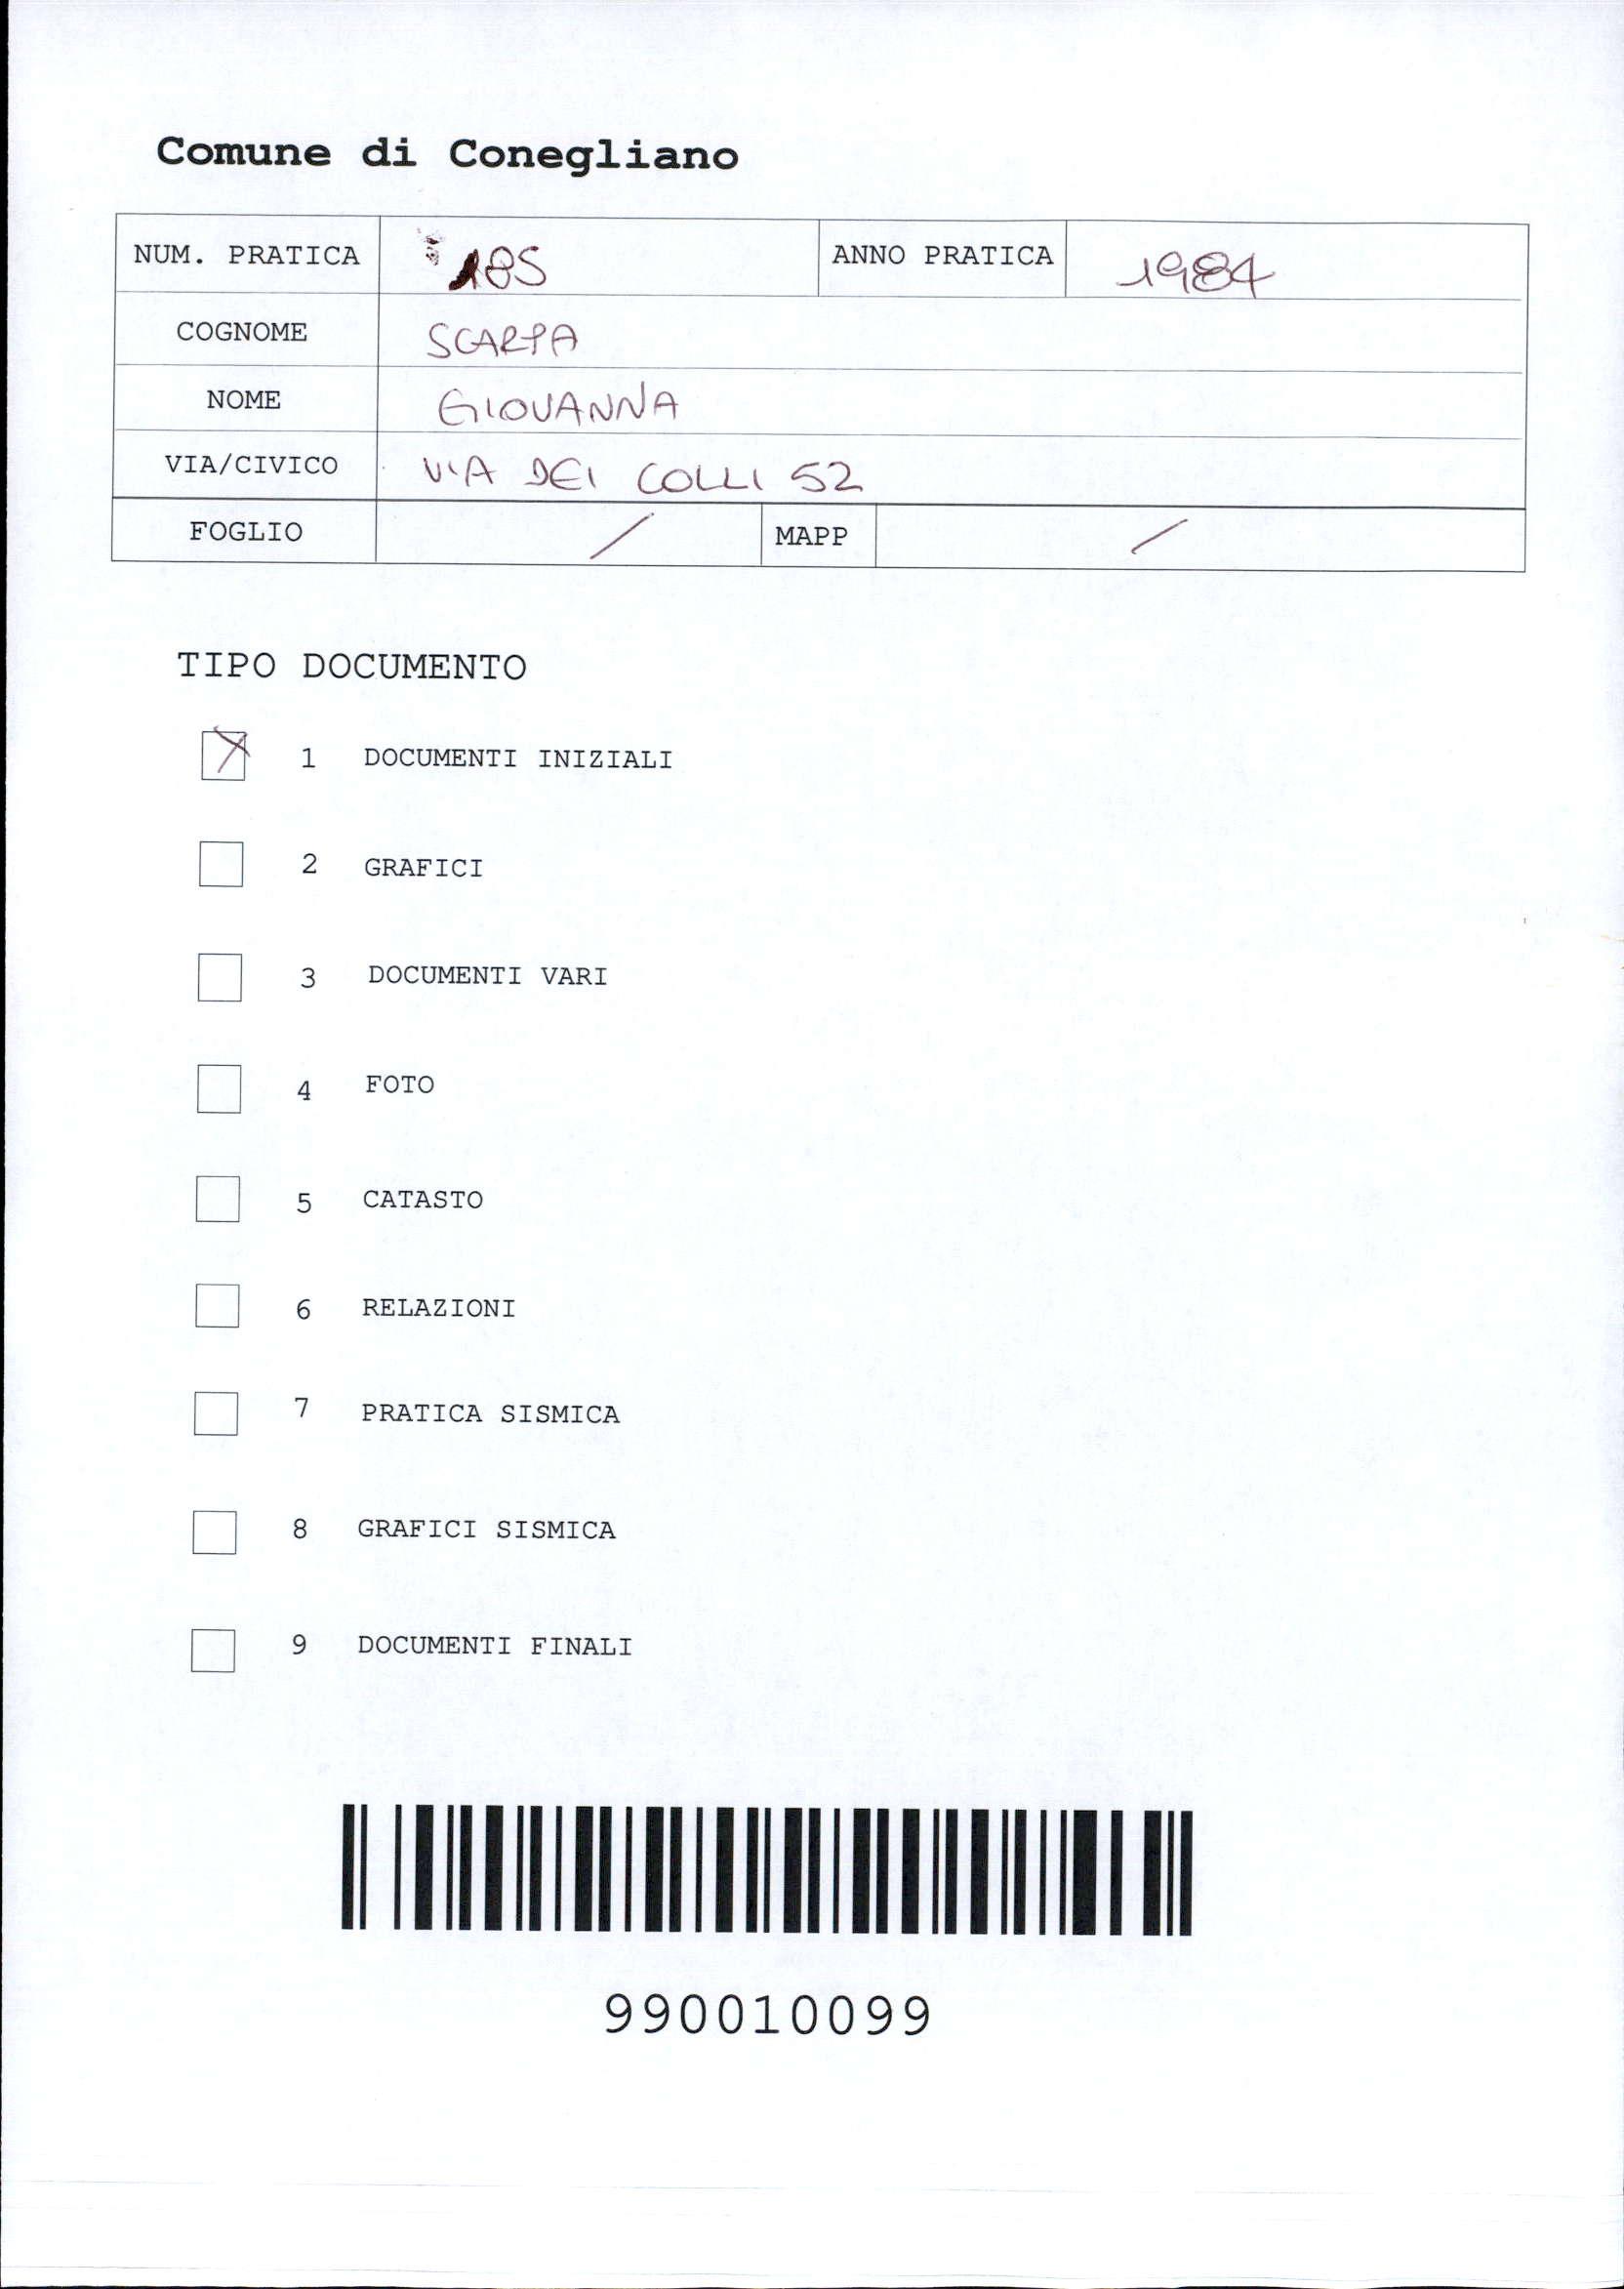 Comune di Conegliano
NUM. PRATICA 185 ANNO PRATICA 1984
COGNOME SCARPA
NOME GIOVANNA
VIA/CIVICO VIA DEI COLLI 52
FOGLIO / MAPP /
TIPO DOCUMENTO
1 DOCUMENTI INIZIALI
2 GRAFICI
3 DOCUMENTI VARI
4 FOTO
5 CATASTO
6 RELAZIONI
7 PRATICA SISMICA
8 GRAFICI SISMICA
9 DOCUMENTI FINALI
990010099